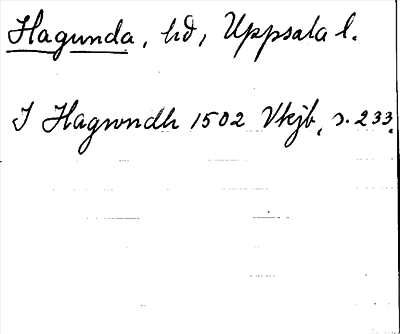 Hagunda, hd, Uppsala l.
I Hagwndh 1502 Vkjb, s. 233.